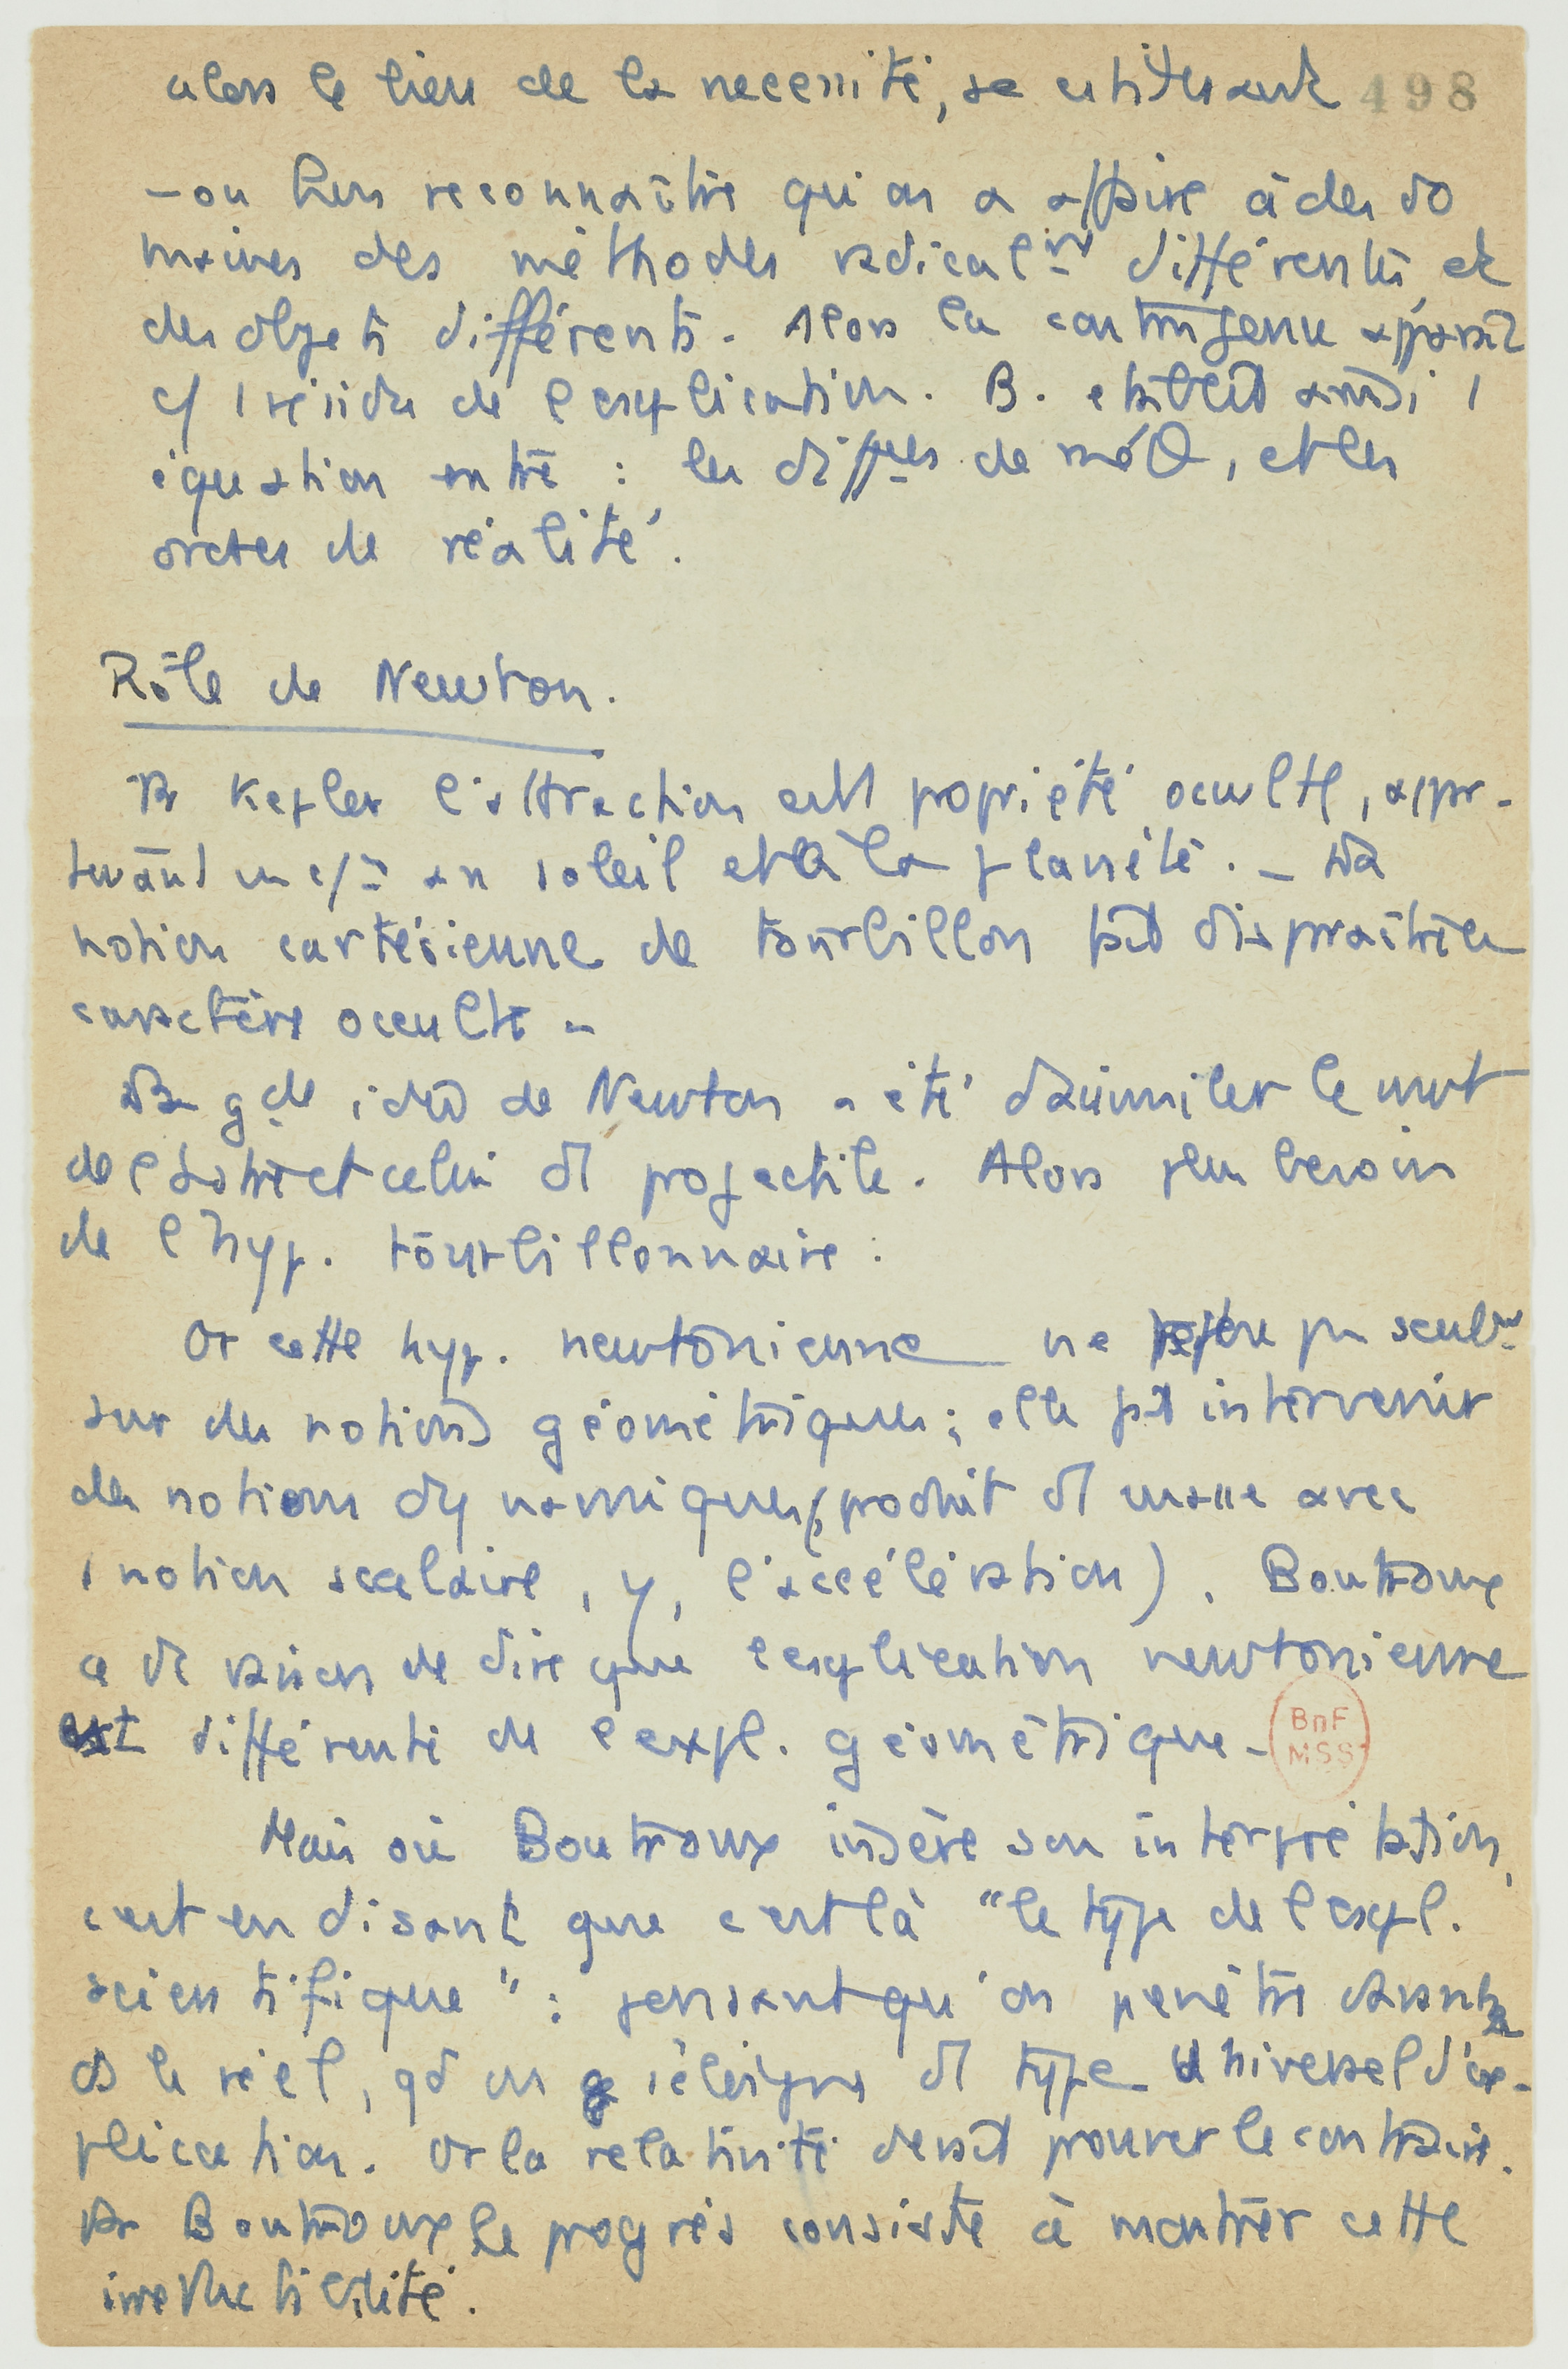 alors le lien de la necessité, se estituant 498
- ou bien reconnaitre qu'on a affaire à des do
maines des méthodes radical^nt différentes et
des objets différents. Alors la contingence apparaît
c/ 1 résidu de l'explication. B. établit ainsi 1
équation entre : les de méθ, et les
ordres de réalité.
Rôle de Newton.
Pr Kepler l'attraction est 1 propriété occulte, appr-
tenant en c/ au soleil et à la planète. - La
notion cartésienne de tourbillon fait disparaître le
caractère occulte -
La g^de idée de Newton a été d'assimiler le mvt
de l'astre et celui d1 projectile. Alors plus besoin
de l'hyp. tourbillonnaire :
Or cette hyp. newtonienne ne repose pas seul^nt
sur des notions géométriques ; elle fait intervenir
des notions dynamiques (produit d1 masse avec
1 notion scalaire, γ, l'accélération). Boutroux
a dc raison de dire que l'explication newtonienne
est différente de l'expl. géométrique -
Mais où Boutroux insère son interprétation,
c'est en disant que c'est là "le type de l'expl.
scientifique" : pensant qu'on pénètre davantage
ds le réel, qd on s'éloigne d1 type universel d'ex-
plication. Or la relativité devait prouver le contraire.
Pr Boutroux le progrès consiste à montrer cette
irréductibilité.
BnF
MSS